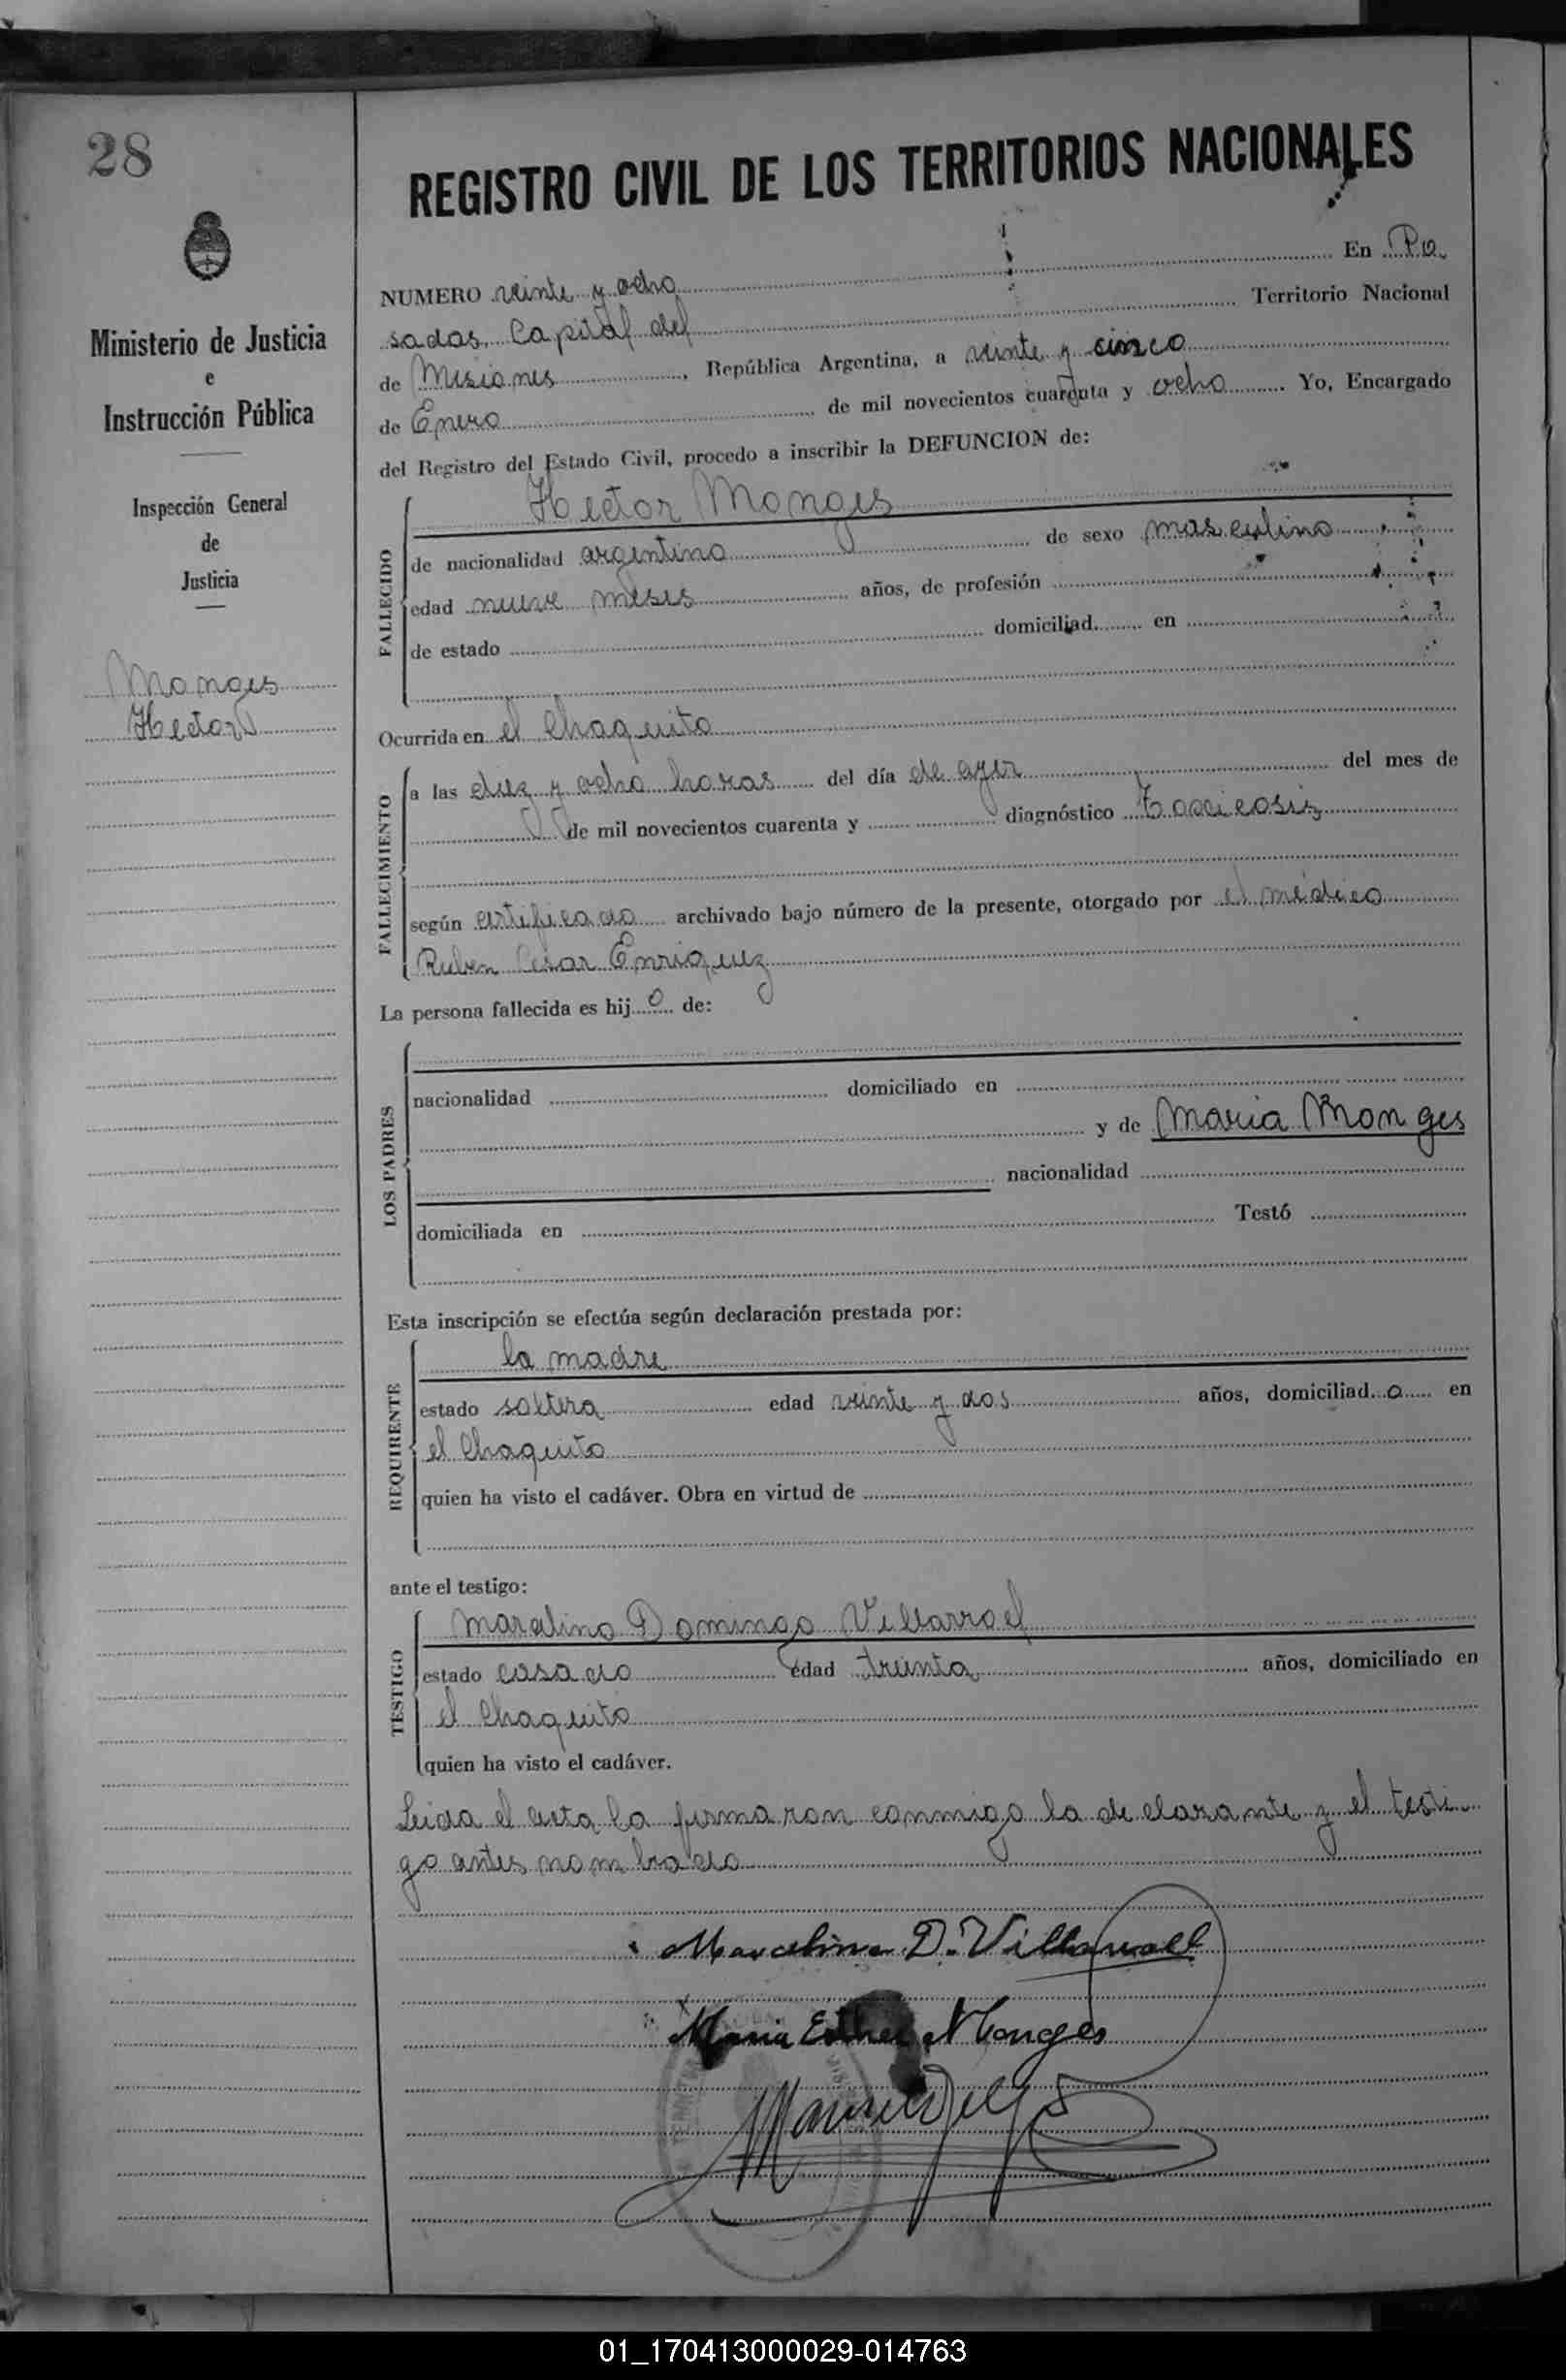 28
Ministerio de Justicia
e
Instrucción Pública
Inspección General
de
Justicia
Monges
Hector
REGISTRO CIVIL DE LOS TERRITORIOS NACIONALES
NUMERO veinte y ocho En Po
sadas, Capital del Territorio Nacional
de Misiones, República Argentina, a veinte y cinco
de Enero de mil novecientos cuarenta y ocho Yo, Encargado
del Registro del Estado Civil, procedo a inscribir la DEFUNCION de:
FALLECIDO
Hector Monges
de nacionalidad argentino de sexo masculino
edad nueve meses años, de profesión
de estado domiciliad en
Ocurrida en el Chaquito
FALLECIMIENTO
a las diez y ocho horas del día de ayer del mes de
de mil novecientos cuarenta y diagnóstico Toxicosis
según certificado archivado bajo número de la presente, otorgado por el médico
Ruben Cesar Enriquez
La persona fallecida es hijo de:
LOS PADRES
nacionalidad domiciliado en
y de Maria Monges
nacionalidad
domiciliada en Testó
Esta inscripción se efectúa según declaración prestada por:
REQUIRENTE
la madre
estado soltera edad veinte y dos años, domiciliada en
el Chaquito
quien ha visto el cadáver. Obra en virtud de
ante el testigo:
TESTIGO
Marcelino Domingo Villarroel
estado casado edad treinta años, domiciliado en
el Chaquito
quien ha visto el cadáver.
Leida el acta la firmaron conmigo la declarante y el testi
go antes nombrado
Marcelino D. Villarroel
Maria Esther Monges
01_170413000029-014763